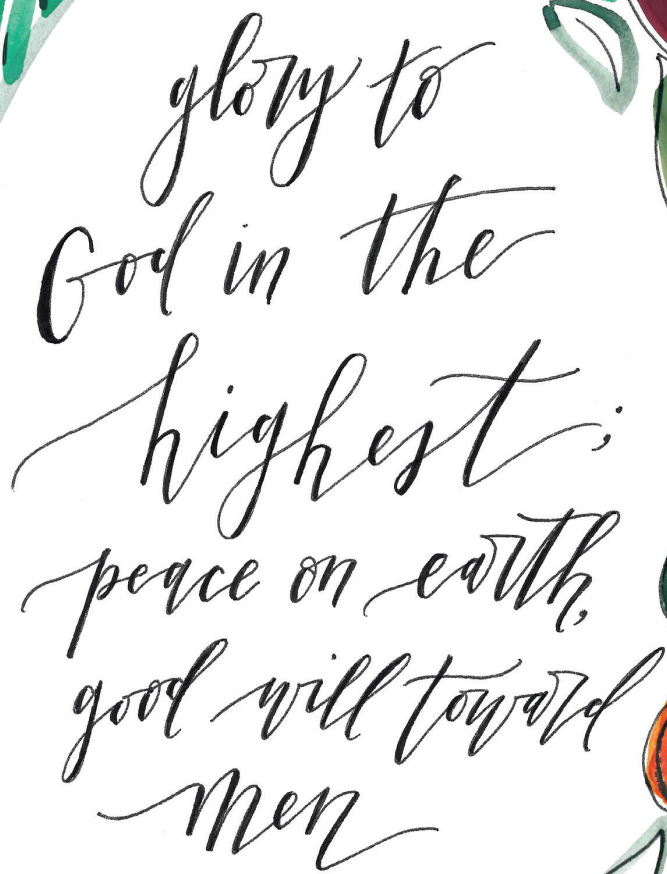 glory to
God in the
highest;
peace on earth,
good will toward
men